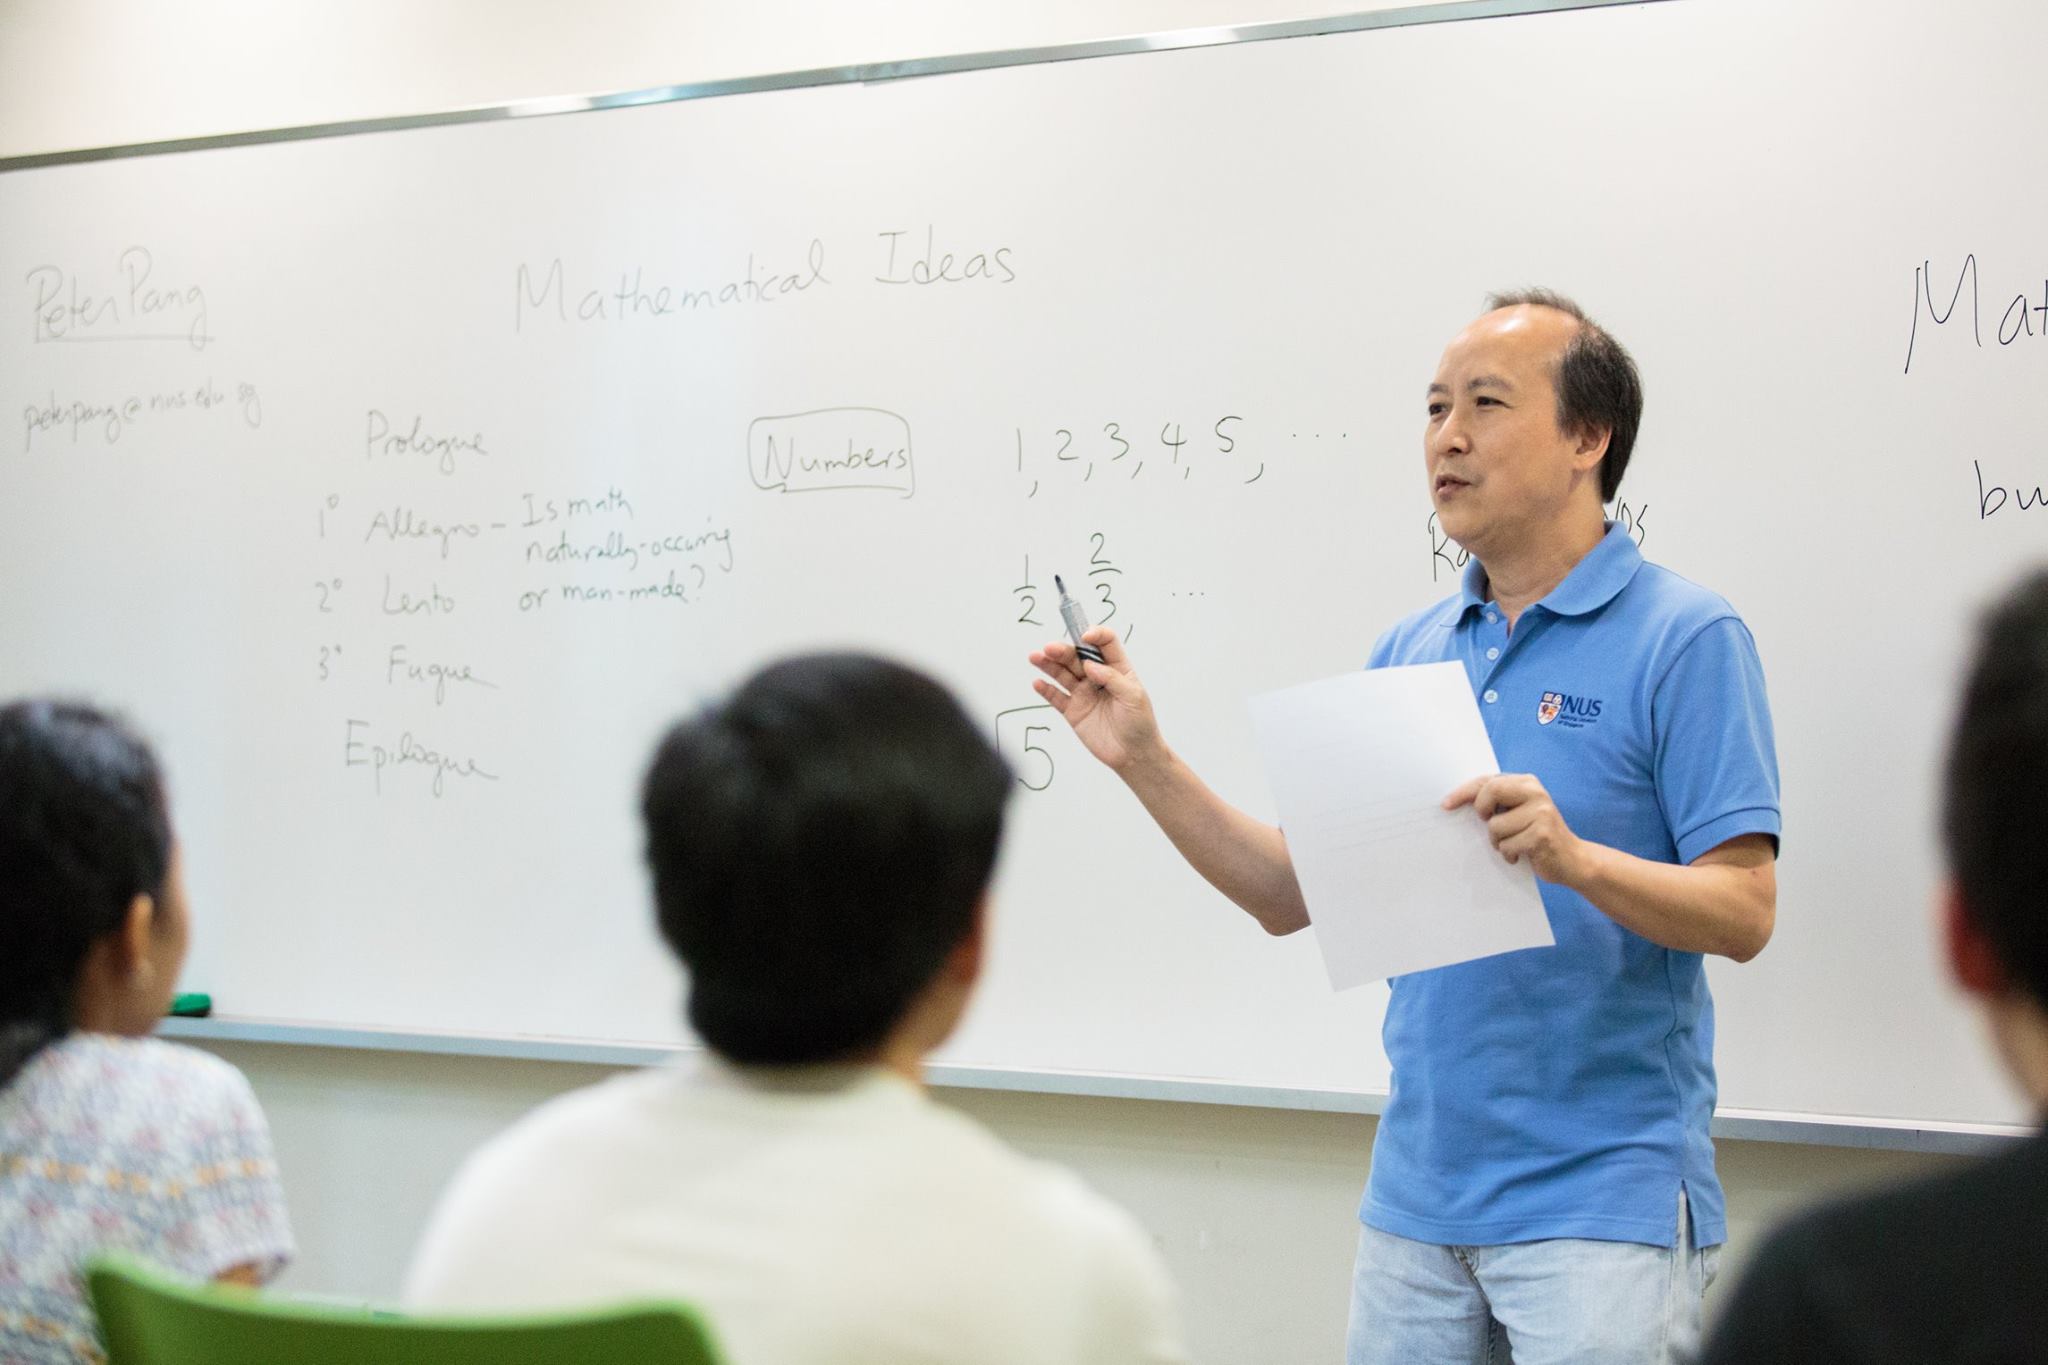 Peter Pang
peterpang@nus.edu.sg
Mathematical Ideas
Prologue
1° Allegro - Is math
naturally-occuring
or man-made?
2° Lento
3° Fugue
Epilogue
Numbers
1, 2, 3, 4, 5, ...
1/2, 2/3, ...
5
Mat
bu
NUS
National University
of Singapore